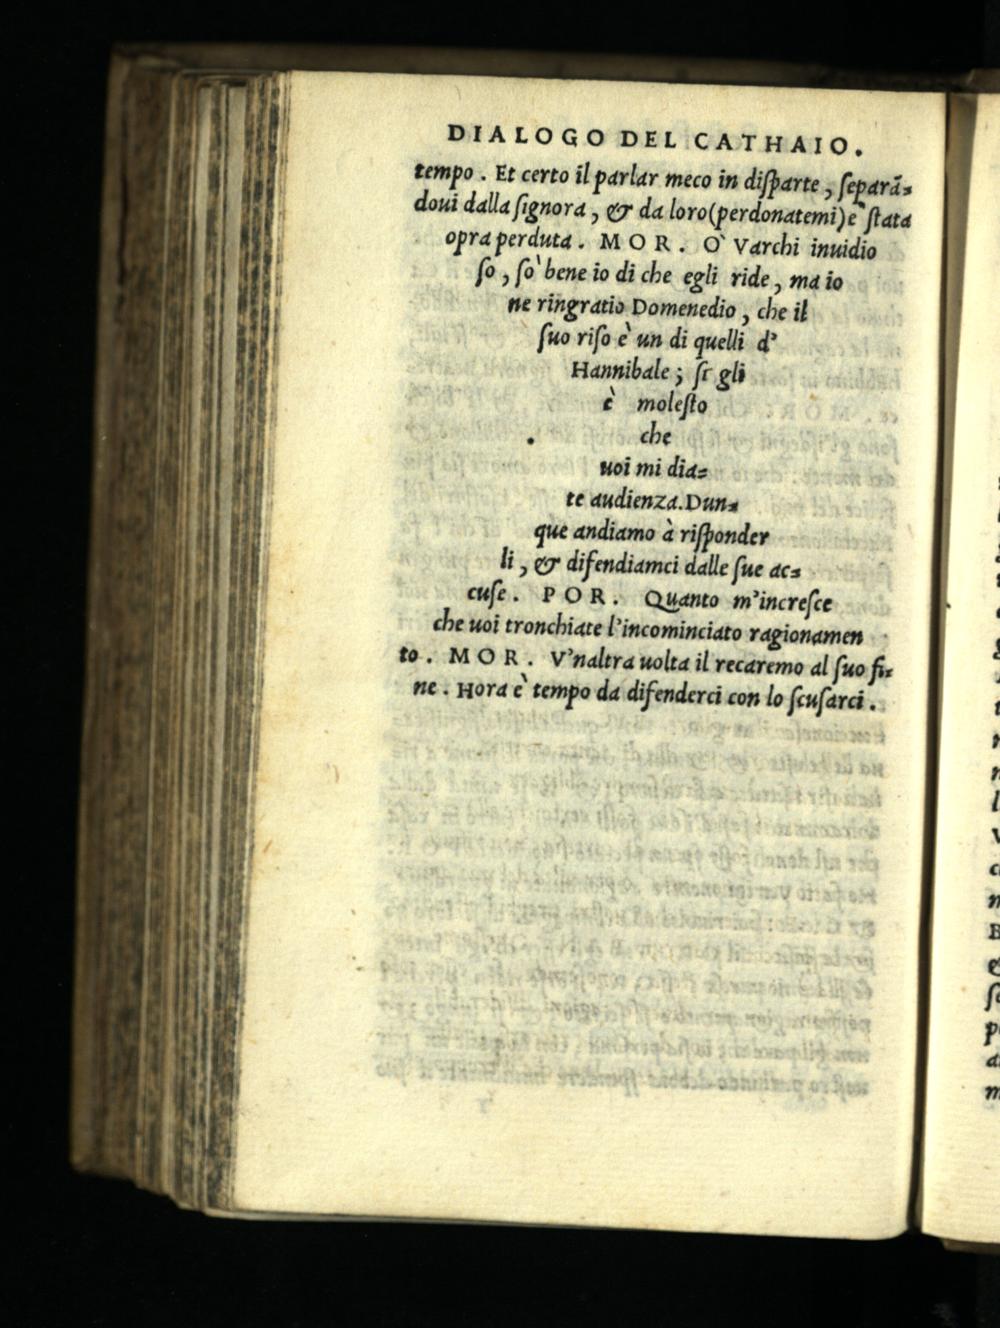 DIALOGO DEL CATHAIO.
tempo . Et certo il parlar meco in diſparte , ſeparã-
doui dalla ſignora , & da loro(perdonatemi)è ſtata
opra perduta . MOR . O` Varchi inuidio
ſo , ſo` bene io di che egli ride , ma io
ne ringratio Domenedio , che il
ſuo riſo è un di quelli d'
Hannibale ; ſi gli
è moleſto
che
uoi mi dia-
te audienza.Dun-
que andiamo à riſponder
li , & difendiamci dalle ſue ac-
cuſe . POR . Quanto m'increſce
che uoi tronchiate l'incominciato ragionamen
to . MOR . V'naltra uolta il recaremo al ſuo fi-
ne . Hora è tempo da difenderci con lo ſcuſarci .